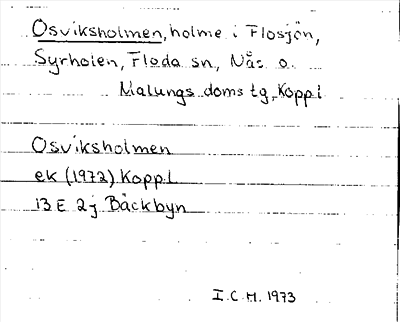 Osviksholmen, holme i Flosjön,
Syrholen, Floda sn, Nås o.
Malungs doms tg, Kopp.l
Osviksholmen
ek (1972) Kopp.l
13 E 2j Bäckbyn
I.C.H. 1973